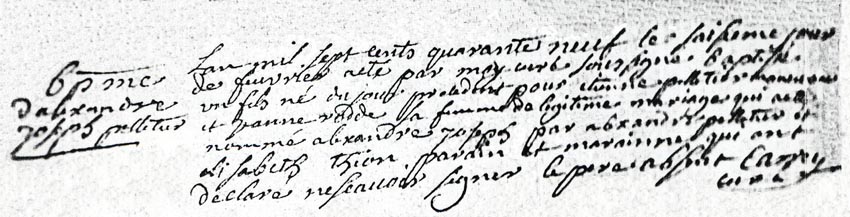 bpme
d'alexandre
joseph pelletier
L'an mil sept cents quarante neuf le saisieme jour
de fevrier a ete par moy curé soussigné baptisé
un fils né du jour precedent pour etienne pelletier manouvrier
et jeanne rodde sa femme de legitime mariage qui a ete
nommé alexandre joseph par alexandre pelletier et
elisabeth thion parain et marainne qui ont
declare ne scavoir signer le pere absent Carrey
curé